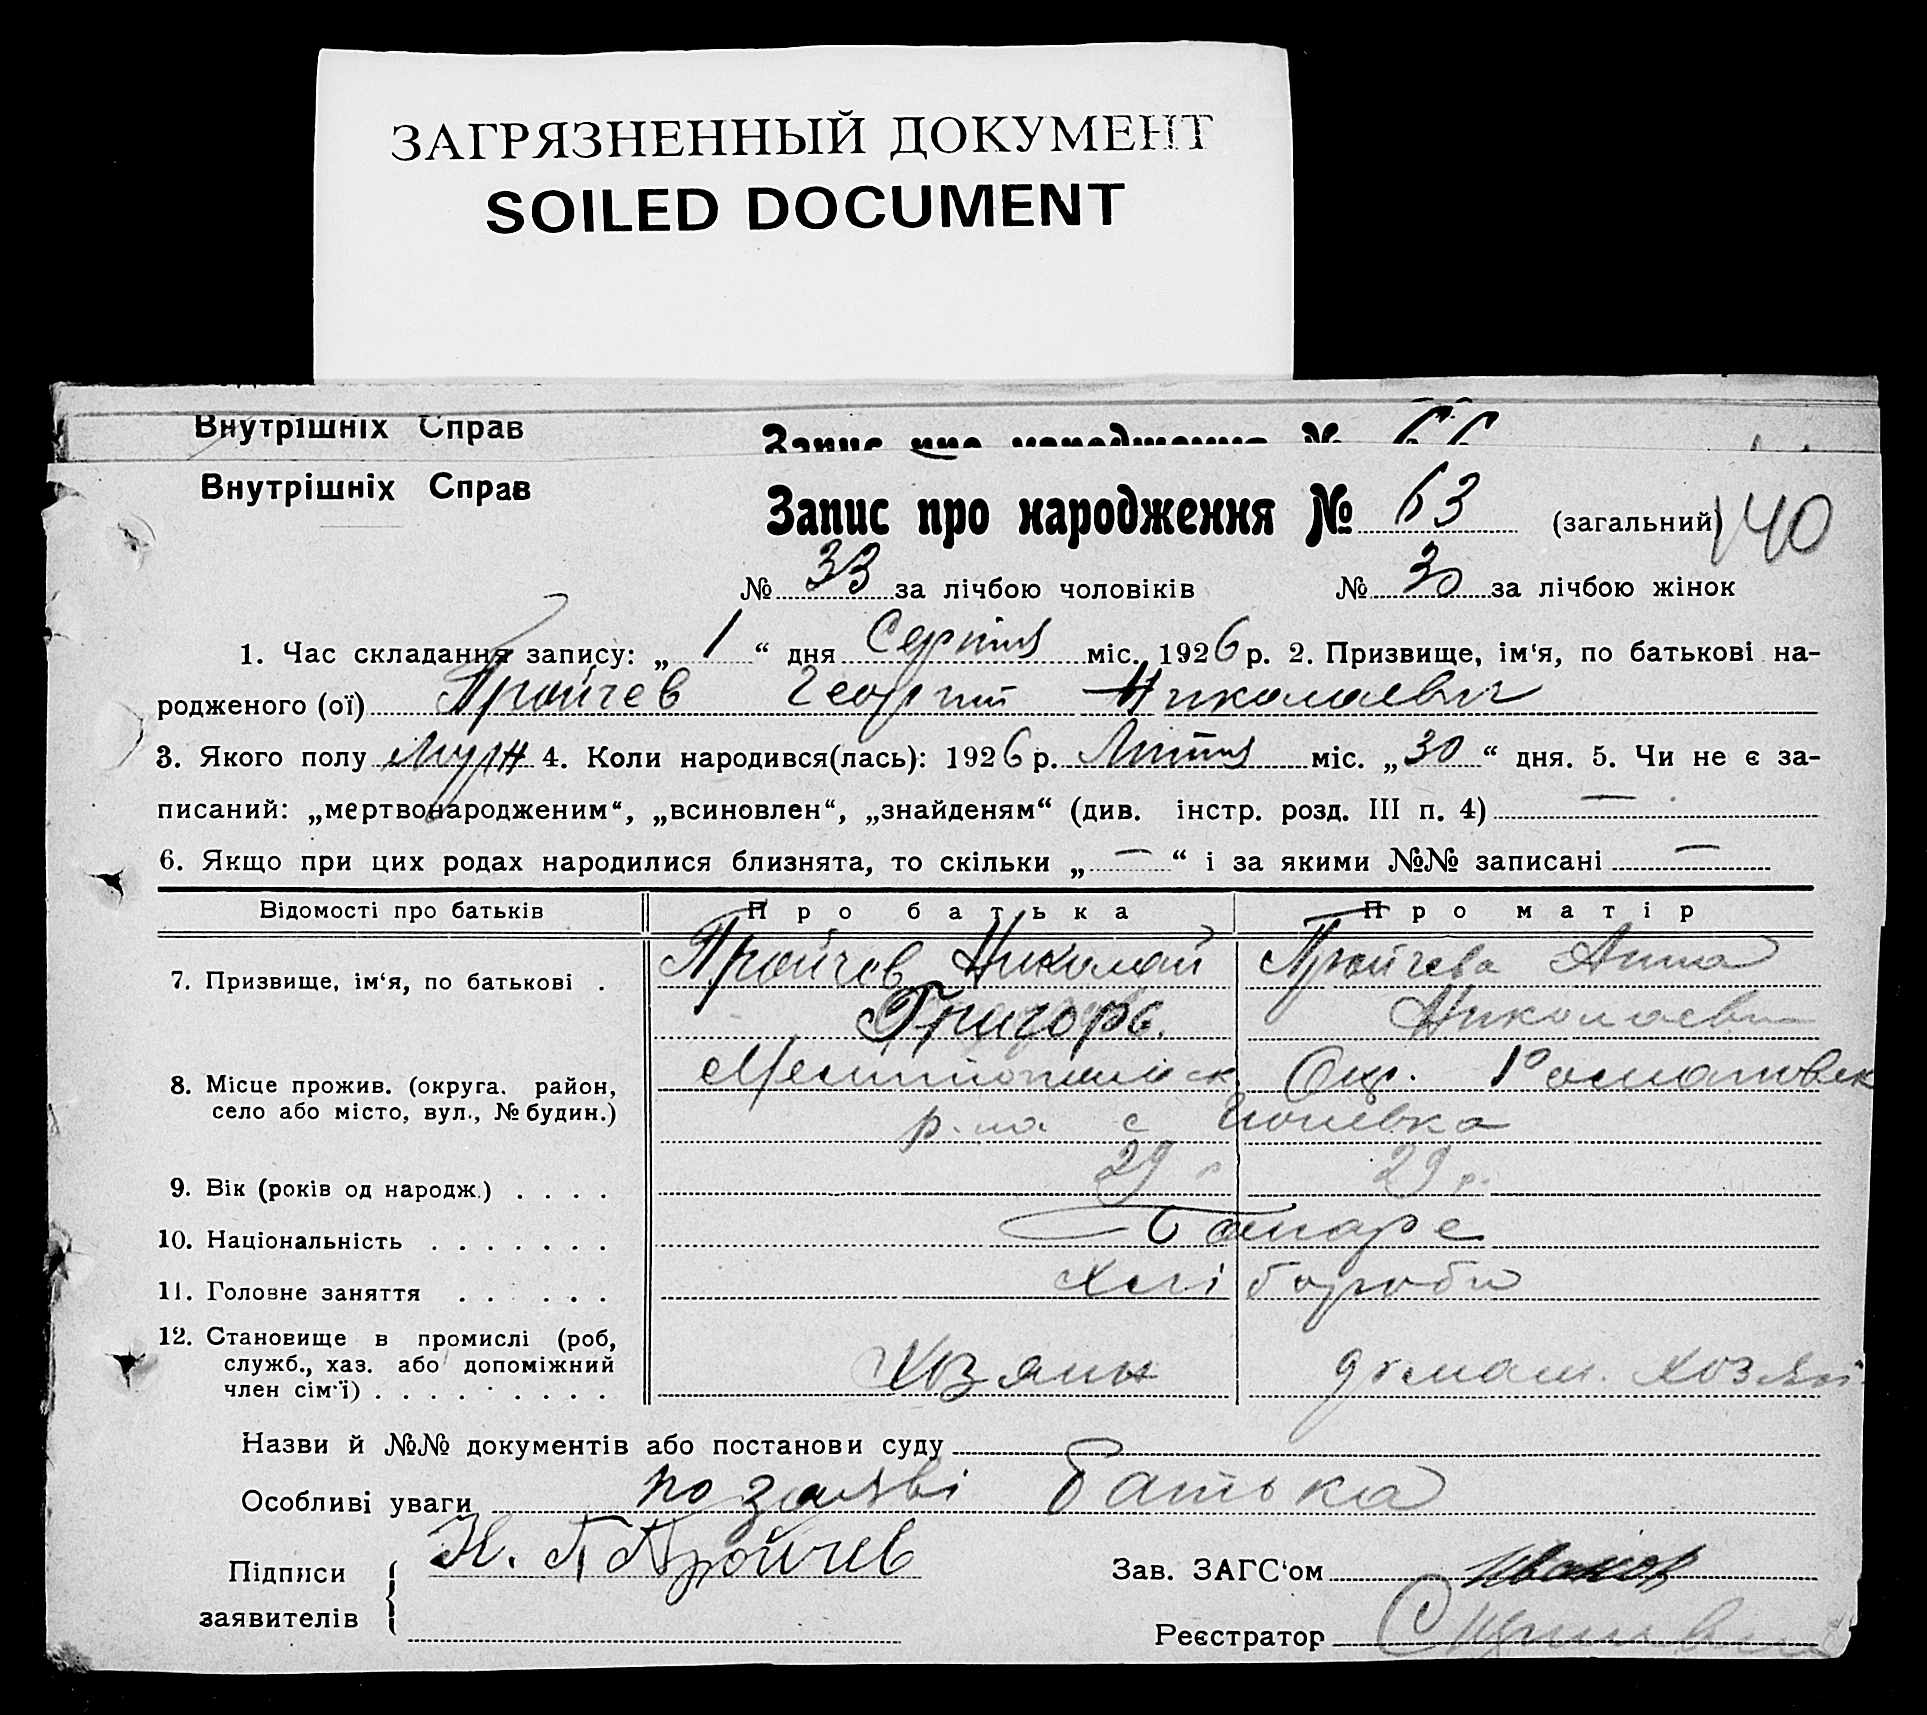 ЗАГРЯЗНЕННЫЙ ДОКУМЕНТ
SOILED DOCUMENT
Внутрішніх Справ Запис про народження № 66
Внутрішніх Справ
Запис про народження № 63 (загальний) 140
№ 33 за лічбою чоловіків № 30 за лічбою жінок
1. Час складання запису: „ 1 “ дня Серпня міс. 1926 р. 2. Призвище, ім‘я, по батькові на-
родженого (ої) Пройчев Георгий Николаевич
3. Якого полу муж 4. Коли народився(лась): 1926 р. Липня міс. „30“ дня. 5. Чи не є за-
писаний: „мертвонародженим“, „всиновлен“, „знайденям“ (див. інстр. розд. III п. 4) —
6. Якщо при цих родах народилися близнята, то скільки „ — “ і за якими №№ записані —
Відомості про батьків Про батька Про матір
7. Призвище, ім‘я, по батькові . Пройчев Николай Пройчева Анна
Григорь. Николаевн
8. Місце прожив. (округа, район, село або місто, вул., № будин.) Мелитопольск. Окр. Романовск
р-на с
9. Вік (років од народж.) . . . . 29 р 29 р.
10. Національність . . . . . . . Болгаре
11. Головне заняття . . . . . . хліборобы
12. Становище в промислі (роб,
служб., хаз. або допоміжний
член сім‘ї) . . . . . . . . . Хозяин домаш. хозяй.
Назви й №№ документів або постанови суду
Особливі уваги по заяві батька
Підписи
заявителів
Н. Г. Пройчев
Зав. ЗАГС‘ом Иванов
Реєстратор